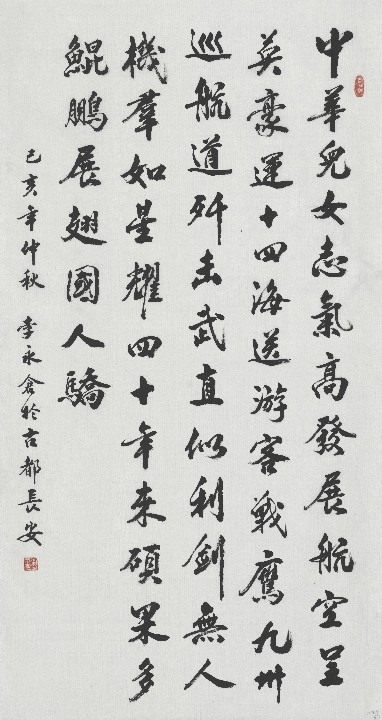 中華兒女志氣高發展航空呈
英豪運十四海送游客戰鷹九州
巡航道歼击武直似利劍無人
機羣如星耀四十年来碩果多
鯤鵬展翅國人驕
己亥年仲秋 李永倉於古都長安